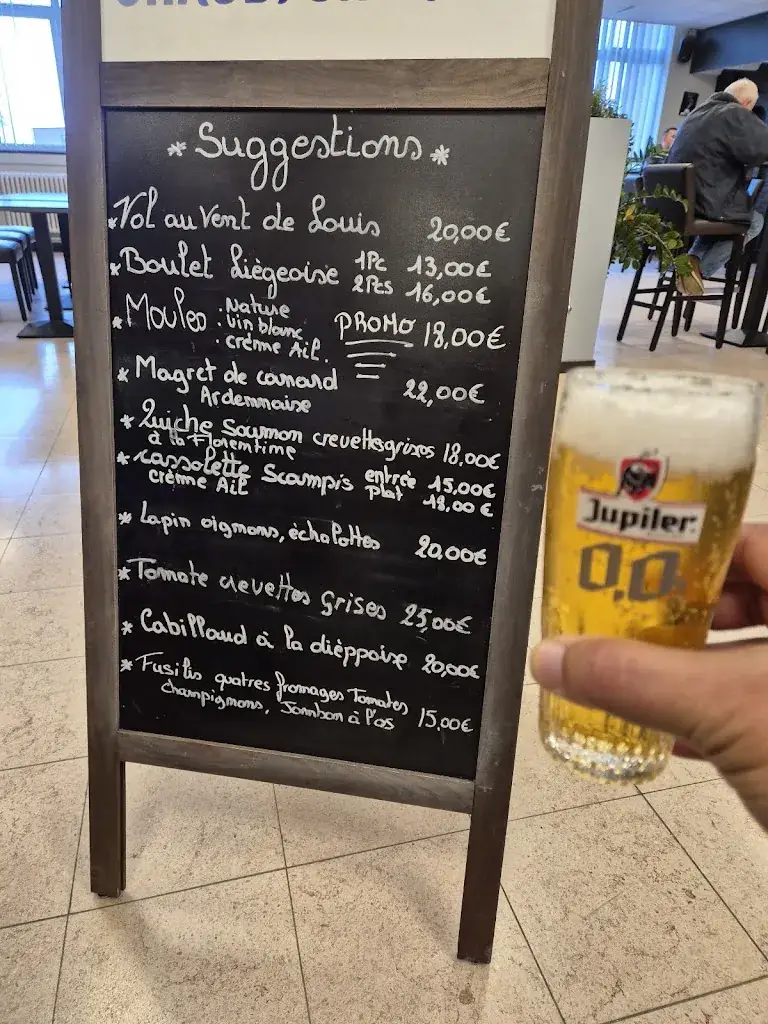 * Suggestions *
* Vol au Vent de Louis 20,00€
* Boulet Liégeoise 1Pc 13,00€
2Pcs 16,00€
* Moules . Nature
. Vin blanc PROMO 18,00€
. crème Ail.
* Magret de canard 22,00€
Ardennaise
* Quiche Saumon crevettes grises 18,00€
à la Florentine
* Cassolette Scampis entrée 15,00€
crème Ail plat 18,00€
* Lapin oignons, échalottes 20,00€
* Tomate crevettes Grises 25,00€
* Cabillaud à la dièppoise 20,00€
* Fusilis quatres fromages Tomates
Champignons, Jambon à l'os 15,00€
Jupiler
0,0%